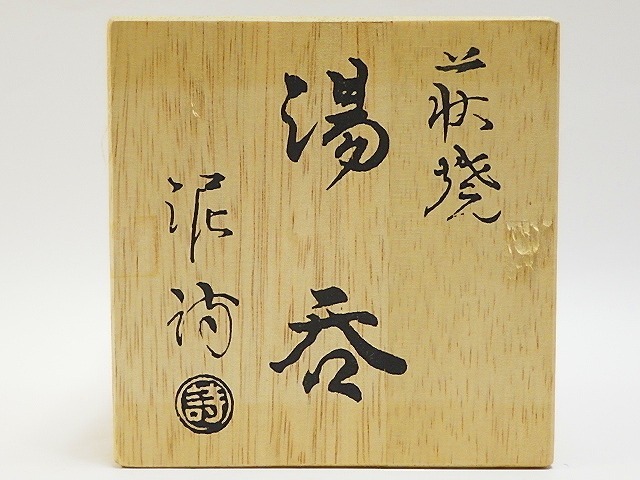 萩焼
湯呑
泥詩
詩